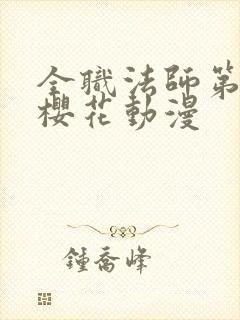 全職法師第
櫻花動漫
鍾喬峰